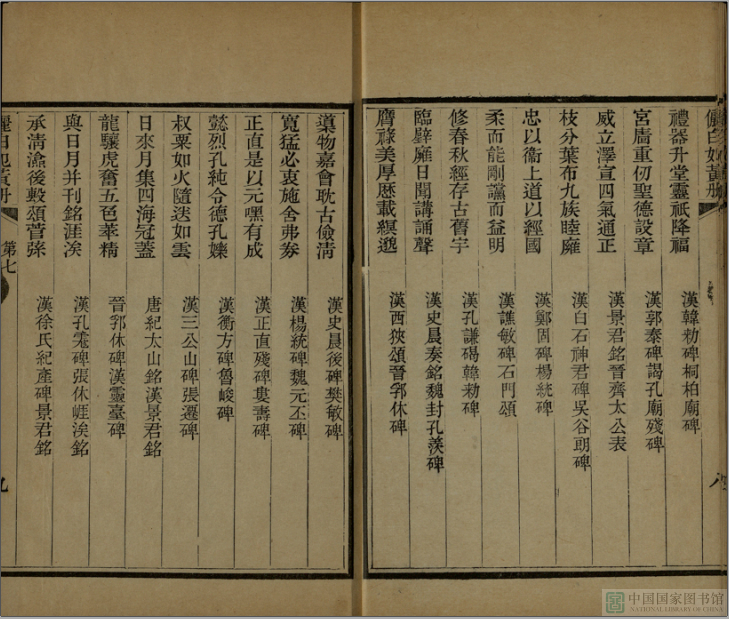 禮器升堂靈祇降福 漢韓勑碑桐柏廟碑
宮廧重仞聖德設章 漢郭泰碑謁孔廟殘碑
威立澤宣四氣通正 漢景君銘晉齊太公表
枝分葉布九族睦廱 漢白石神君碑吳谷朗碑
忠以衞上道以經國 漢鄭固碑楊統碑
柔而能剛讜而益明 漢譙敏碑石門頌
修春秋經存古舊宇 漢孔謙碣韓勑碑
臨辟廱日聞講誦聲 漢史晨奏銘魏封孔羨碑
膺祿美厚歷載緜邈 漢西狹頌晉郛休碑
導物嘉會耽古儉清 漢史晨後碑樊敏碑
寬猛必衷施舍弗券 漢楊統碑魏元丕碑
正直是以元嘿有成 漢正直殘碑婁壽碑
懿烈孔純令德孔爍 漢衡方碑魯峻碑
叔粟如火隨送如雲 漢三公山碑張遷碑
日來月集四海冠蓋 唐紀太山銘漢景君銘
龍驤虎奮五色華精 晉郛休碑漢靈臺碑
與日月并刊銘涯涘 漢孔宙碑張休崕涘銘
承清漁後轂頌菅蒢 漢徐氏紀產碑景君銘
第七
九
中国国家图书馆
NATIONAL LIBRARY OF CHINA